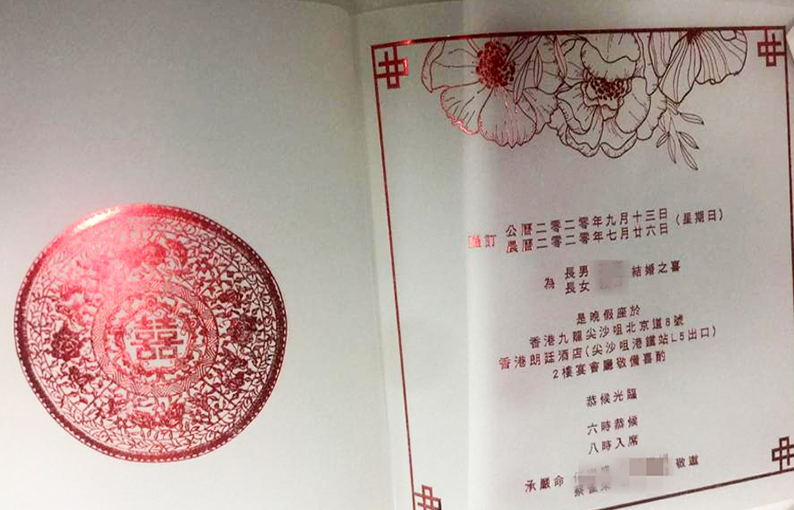 囍
謹訂 公曆二零二零年九月十三日（星期日）
農曆二零二零年七月廿六日
為 長男 結婚之喜
長女
是晚假座於
香港九龍尖沙咀北京道8號
香港朗廷酒店(尖沙咀港鐵站L5出口)
2樓宴會廳敬備喜酌
恭候光臨
六時恭候
八時入席
承嚴命 敬邀